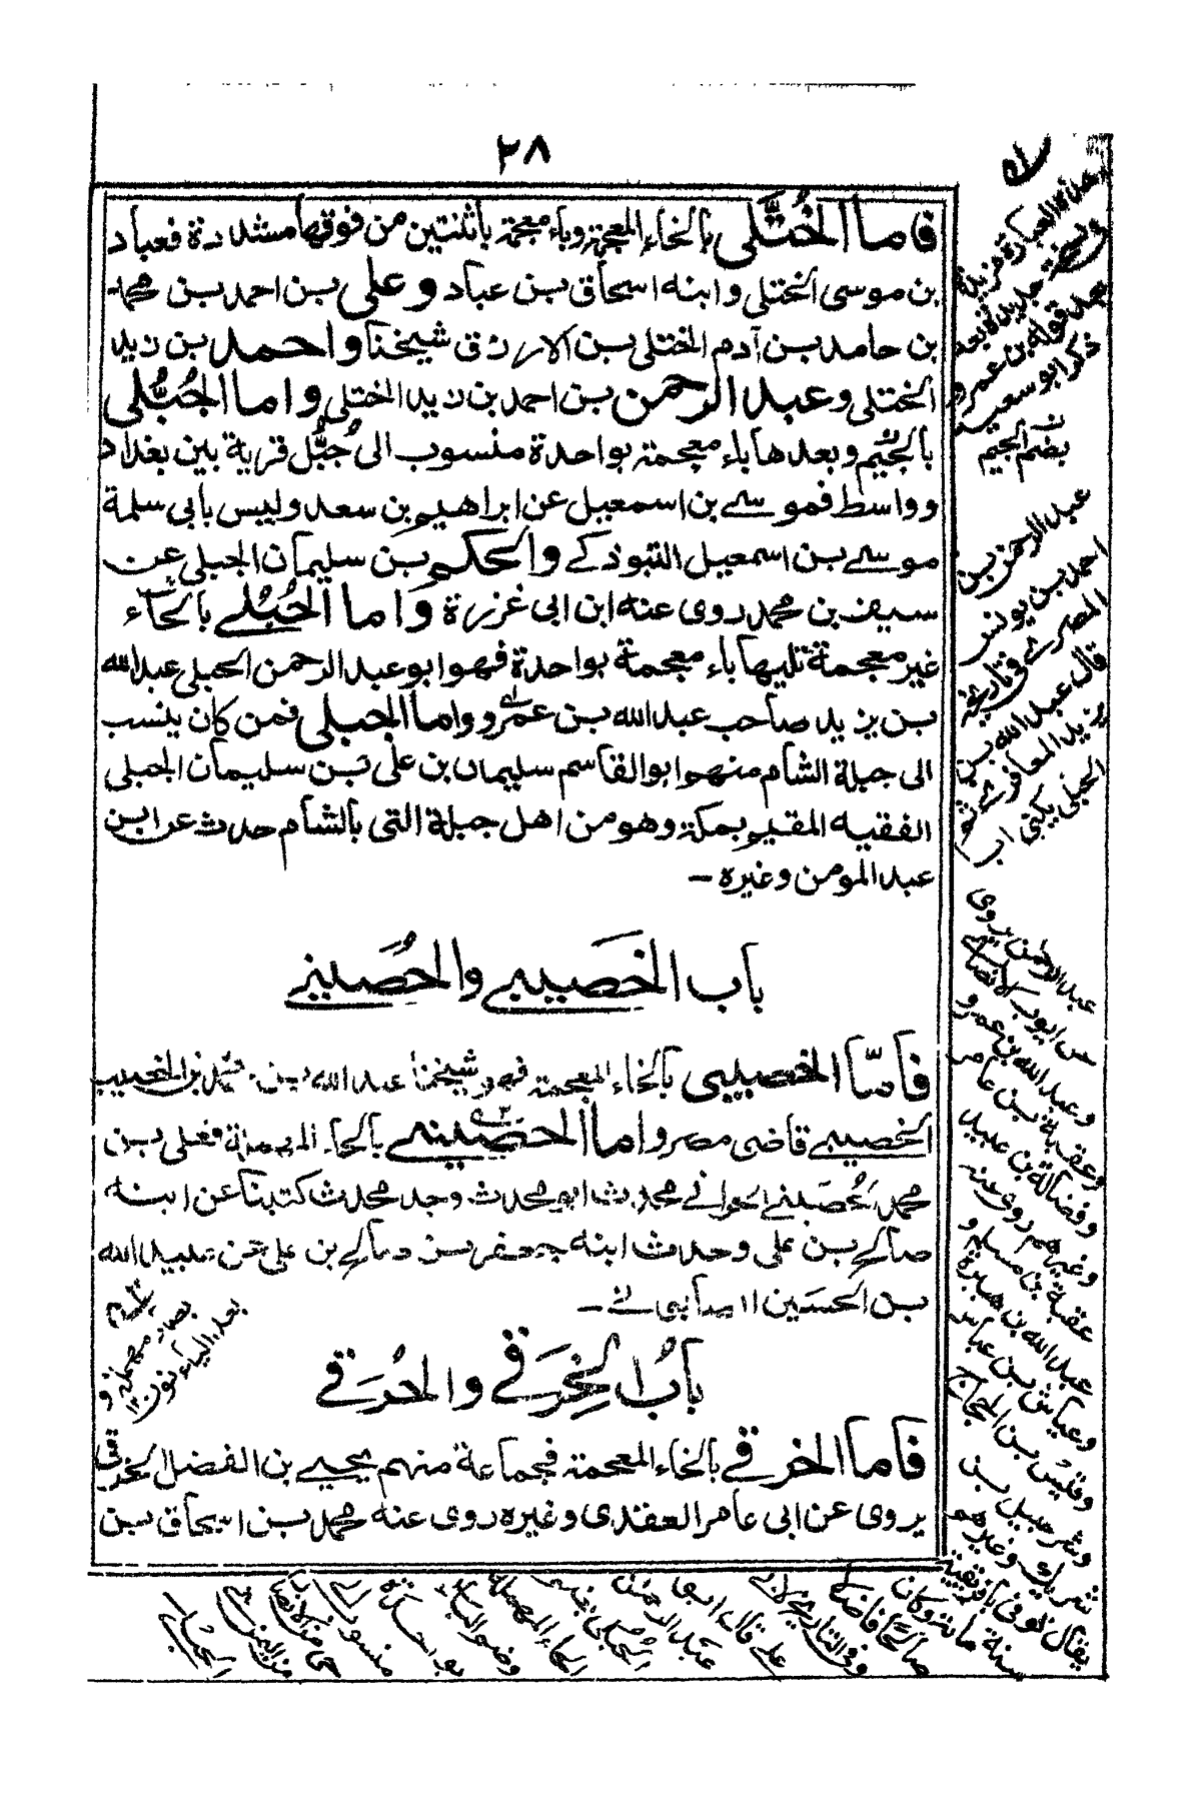 ٢٨
فاما الخُتَّلى بالخاء المعجمة وباء معجمة باثنتين من فوقها مشددة فعباد
بن موسى الختلى وابنه اسحاق بن عباد وعلى بن احمد بن محمد
بن حامد بن آدم الختلى بن الازرق شيخنا واحمد بن زيد
الختلى وعبد الرحمن بن احمد بن زيد الختلى واما الجُبُّلى
بالجيم وبعدها باء معجمة بواحدة منسوب الى جُبُّل قرية بين بغداد
وواسط فموسى بن اسمعيل عن ابراهيم بن سعد وليس بابى سلمة
موسى بن اسمعيل التبوذكى والحكم بن سليمان الجبلى عن
سيف بن محمد روى عنه ابن ابى غرزة واما الحُبُلى بالحاء
غير معجمة تليها باء معجمة بواحدة فهو ابو عبد الرحمن الحبلى عبد الله
بن يزيد صاحب عبد الله بن عمرو واما الجبلى فمن كان ينسب
الى جبلة الشام منهم ابو القاسم سليمان بن على بن سليمان الجبلى
الفقيه المقيم بمكة وهو من اهل جبلة التى بالشام حدث عن ابن
عبد المومن وغيره -
باب الخَصيبى والحُصينى
فامّا الخصيبى بالخاء المعجمة فهو شيخنا عبد الله بن محمد بن الخصيب
الخصيبى قاضى مصر واما الحصينى بالحاء المهملة فعلى بن
محمد الحُصَينى الحرانى محدث ابو محدث وجد محدث كتبنا عن ابنه
صالح بن على وحدث ابنه جعفر بن صالح بن على عن عبيد الله
بن الحسين الصابى -
بابُ الخِرَقى والحُرَقى
فاما الخرقى بالخاء المعجمة فجماعة منهم يحيى بن الفضل الخرقى
يروى عن ابى عامر العقدى وغيره روى عنه محمد بن اسحاق بن
بصاد مهملة و
بعد الياء نون
هذه العبارة مزيدة
بعد قوله بن عمرو
ذكر ابو سعيد
بضم الجيم
عبد الرحمن بن
احمد بن يونس
المصرى فى تاريخه
قال عبد الله بن
يزيد المعافرى ثم
الحبلى يكنى ابا
عبد الرحمن يروى
عن ايوب الانصارى
وعبد الله بن عمرو
وعقبة بن عامر
وفضالة بن عبيد
وغيرهم روى عنه
عقبة بن مسلم و
عبد الله بن هبيرة
وعياش بن عباس
وقيس بن الحجاج
وشرحبيل بن
شريك وغيرهم
يقال توفى بافريقية
سنة مائة وكان
صالحًا فاضلا